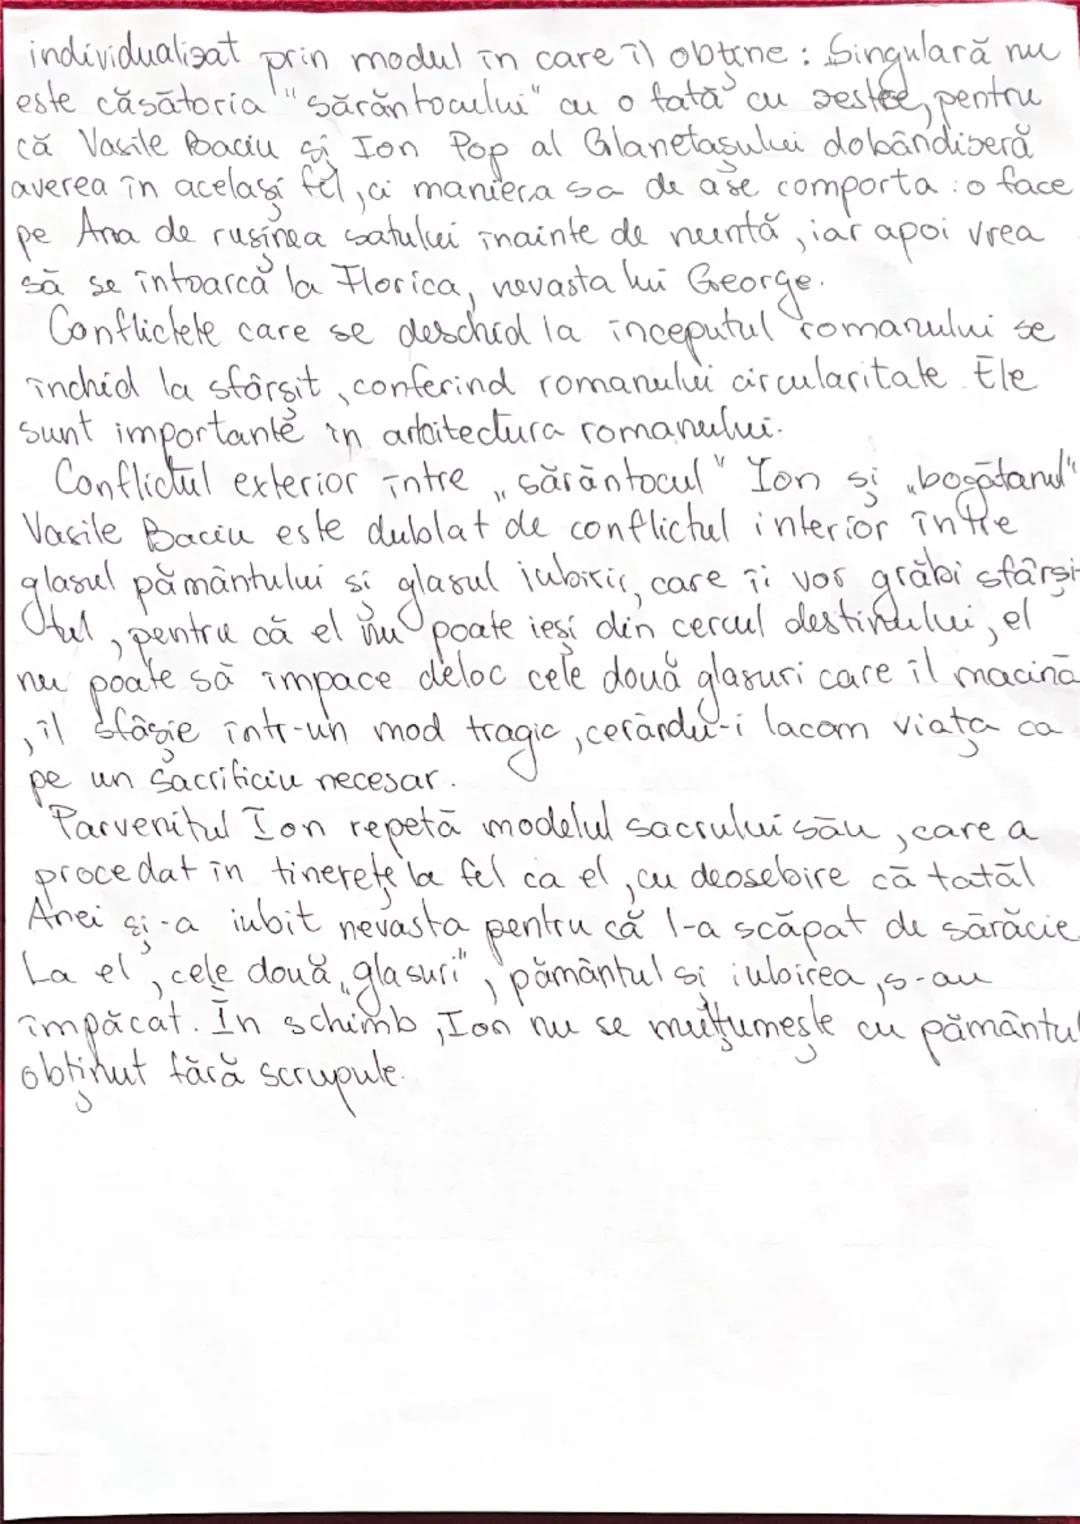 individualizat prin modul în care îl obține: Singulară nu
este căsătoria "sărăntocului" cu o fată cu zestre, pentru
că Vasile Baciu și Ion Pop al Glanetașului dobândiseră
averea în același fel, ci maniera sa de a se comporta: o face
pe Ana de rușinea satului înainte de nuntă, iar apoi vrea
să se întoarcă la Florica, nevasta lui George.
Conflictele care se deschid la începutul romanului se
închid la sfârșit, conferind romanului circularitate. Ele
sunt importante în arhitectura romanului.
Conflictul exterior între „sărăntocul" Ion și „bogătanul"
Vasile Baciu este dublat de conflictul interior între
glasul pământului și glasul iubirii, care îi vor grăbi sfârși-
tul, pentru că el nu poate ieși din cercul destinului, el
nu poate să împace deloc cele două glasuri care îl macină
, îl sfâșie într-un mod tragic, cerându-i lacom viața ca
pe un sacrificiu necesar.
Parvenitul Ion repetă modelul sacrului său, care a
procedat în tinerețe la fel ca el, cu deosebire că tatăl
Anei și-a iubit nevasta pentru că l-a scăpat de sărăcie.
La el, cele două „glasuri", pământul și iubirea, s-au
împăcat. În schimb, Ion nu se mulțumește cu pământul
obținut fără scrupule.